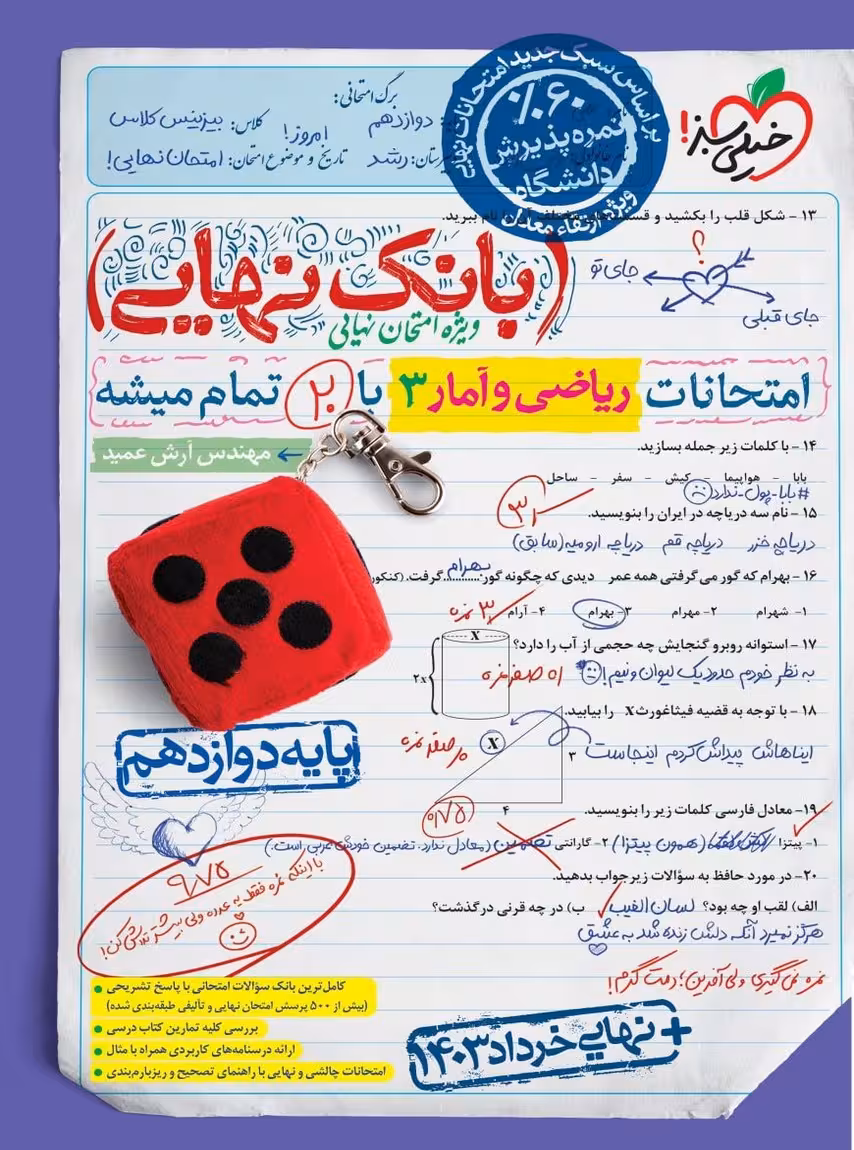 بر اساس سبک جدید امتحانات نهایی
٪۶۰
نمره پذیرش
دانشگاه
ویژه ارتقاء معدل
خیلی سبز!
برگ امتحانی:
دوازدهم
کلاس: بیزینس کلاس
رشد
تاریخ و موضوع امتحان: امروز! امتحان نهایی!
۱۳ - شکل قلب را بکشید و قسمت‌های مختلف آن را نام ببرید.
؟
جای تو
جای قبلی
(بانک نهایی)
ویژه امتحان نهایی
امتحانات ریاضی و آمار ۳ با ۲۰ تمام میشه
مهندس آرش عمید
۱۴ - با کلمات زیر جمله بسازید.
بابا - هواپیما - کیش - سفر - ساحل
#بابا-پول-ندارد
۱۵ - نام سه دریاچه در ایران را بنویسید.
دریاچه خزر دریاچه قم دریاچه ارومیه (سابق)
۱۶ - بهرام که گور می‌گرفتی همه عمر دیدی که چگونه گور بهرام گرفت. (کنکور
۱- شهرام ۲- مهرام ۳- بهرام ۴- آرام
۱۷ - استوانه روبرو گنجایش چه حجمی از آب را دارد؟
X
۲x
به نظر خودم حدود یک لیوان و نیم!
صفر نمره
۱۸ - با توجه به قضیه فیثاغورث X را بیابید.
ایناهاش پیداش کردم اینجاست
X
۳
۴
صفر نمره
پایه دوازدهم
۱۹- معادل فارسی کلمات زیر را بنویسید.
۱- پیتزا (همون پیتزا) ۲- گارانتی تضمین (معادل ندارد. تضمین خودش عربی است.)
۲۰- در مورد حافظ به سؤالات زیر جواب بدهید.
الف) لقب او چه بود؟ لسان الغیب ب) در چه قرنی درگذشت؟
هرگز نمیرد آنکه دلش زنده شد به عشق
نمره نمی‌گیری ولی آفرین؛ دمت گرم!
۹/۷۵
با اینکه نمره فقط یه عدده ولی بیشتر تلاش کن!
کامل‌ترین بانک سؤالات امتحانی با پاسخ تشریحی
(بیش از ۵۰۰ پرسش امتحان نهایی و تألیفی طبقه‌بندی شده)
بررسی کلیه تمارین کتاب درسی
ارائه درسنامه‌های کاربردی همراه با مثال
امتحانات چالشی و نهایی با راهنمای تصحیح و ریزبارم‌بندی
+ نهایی خرداد ۱۴۰۳